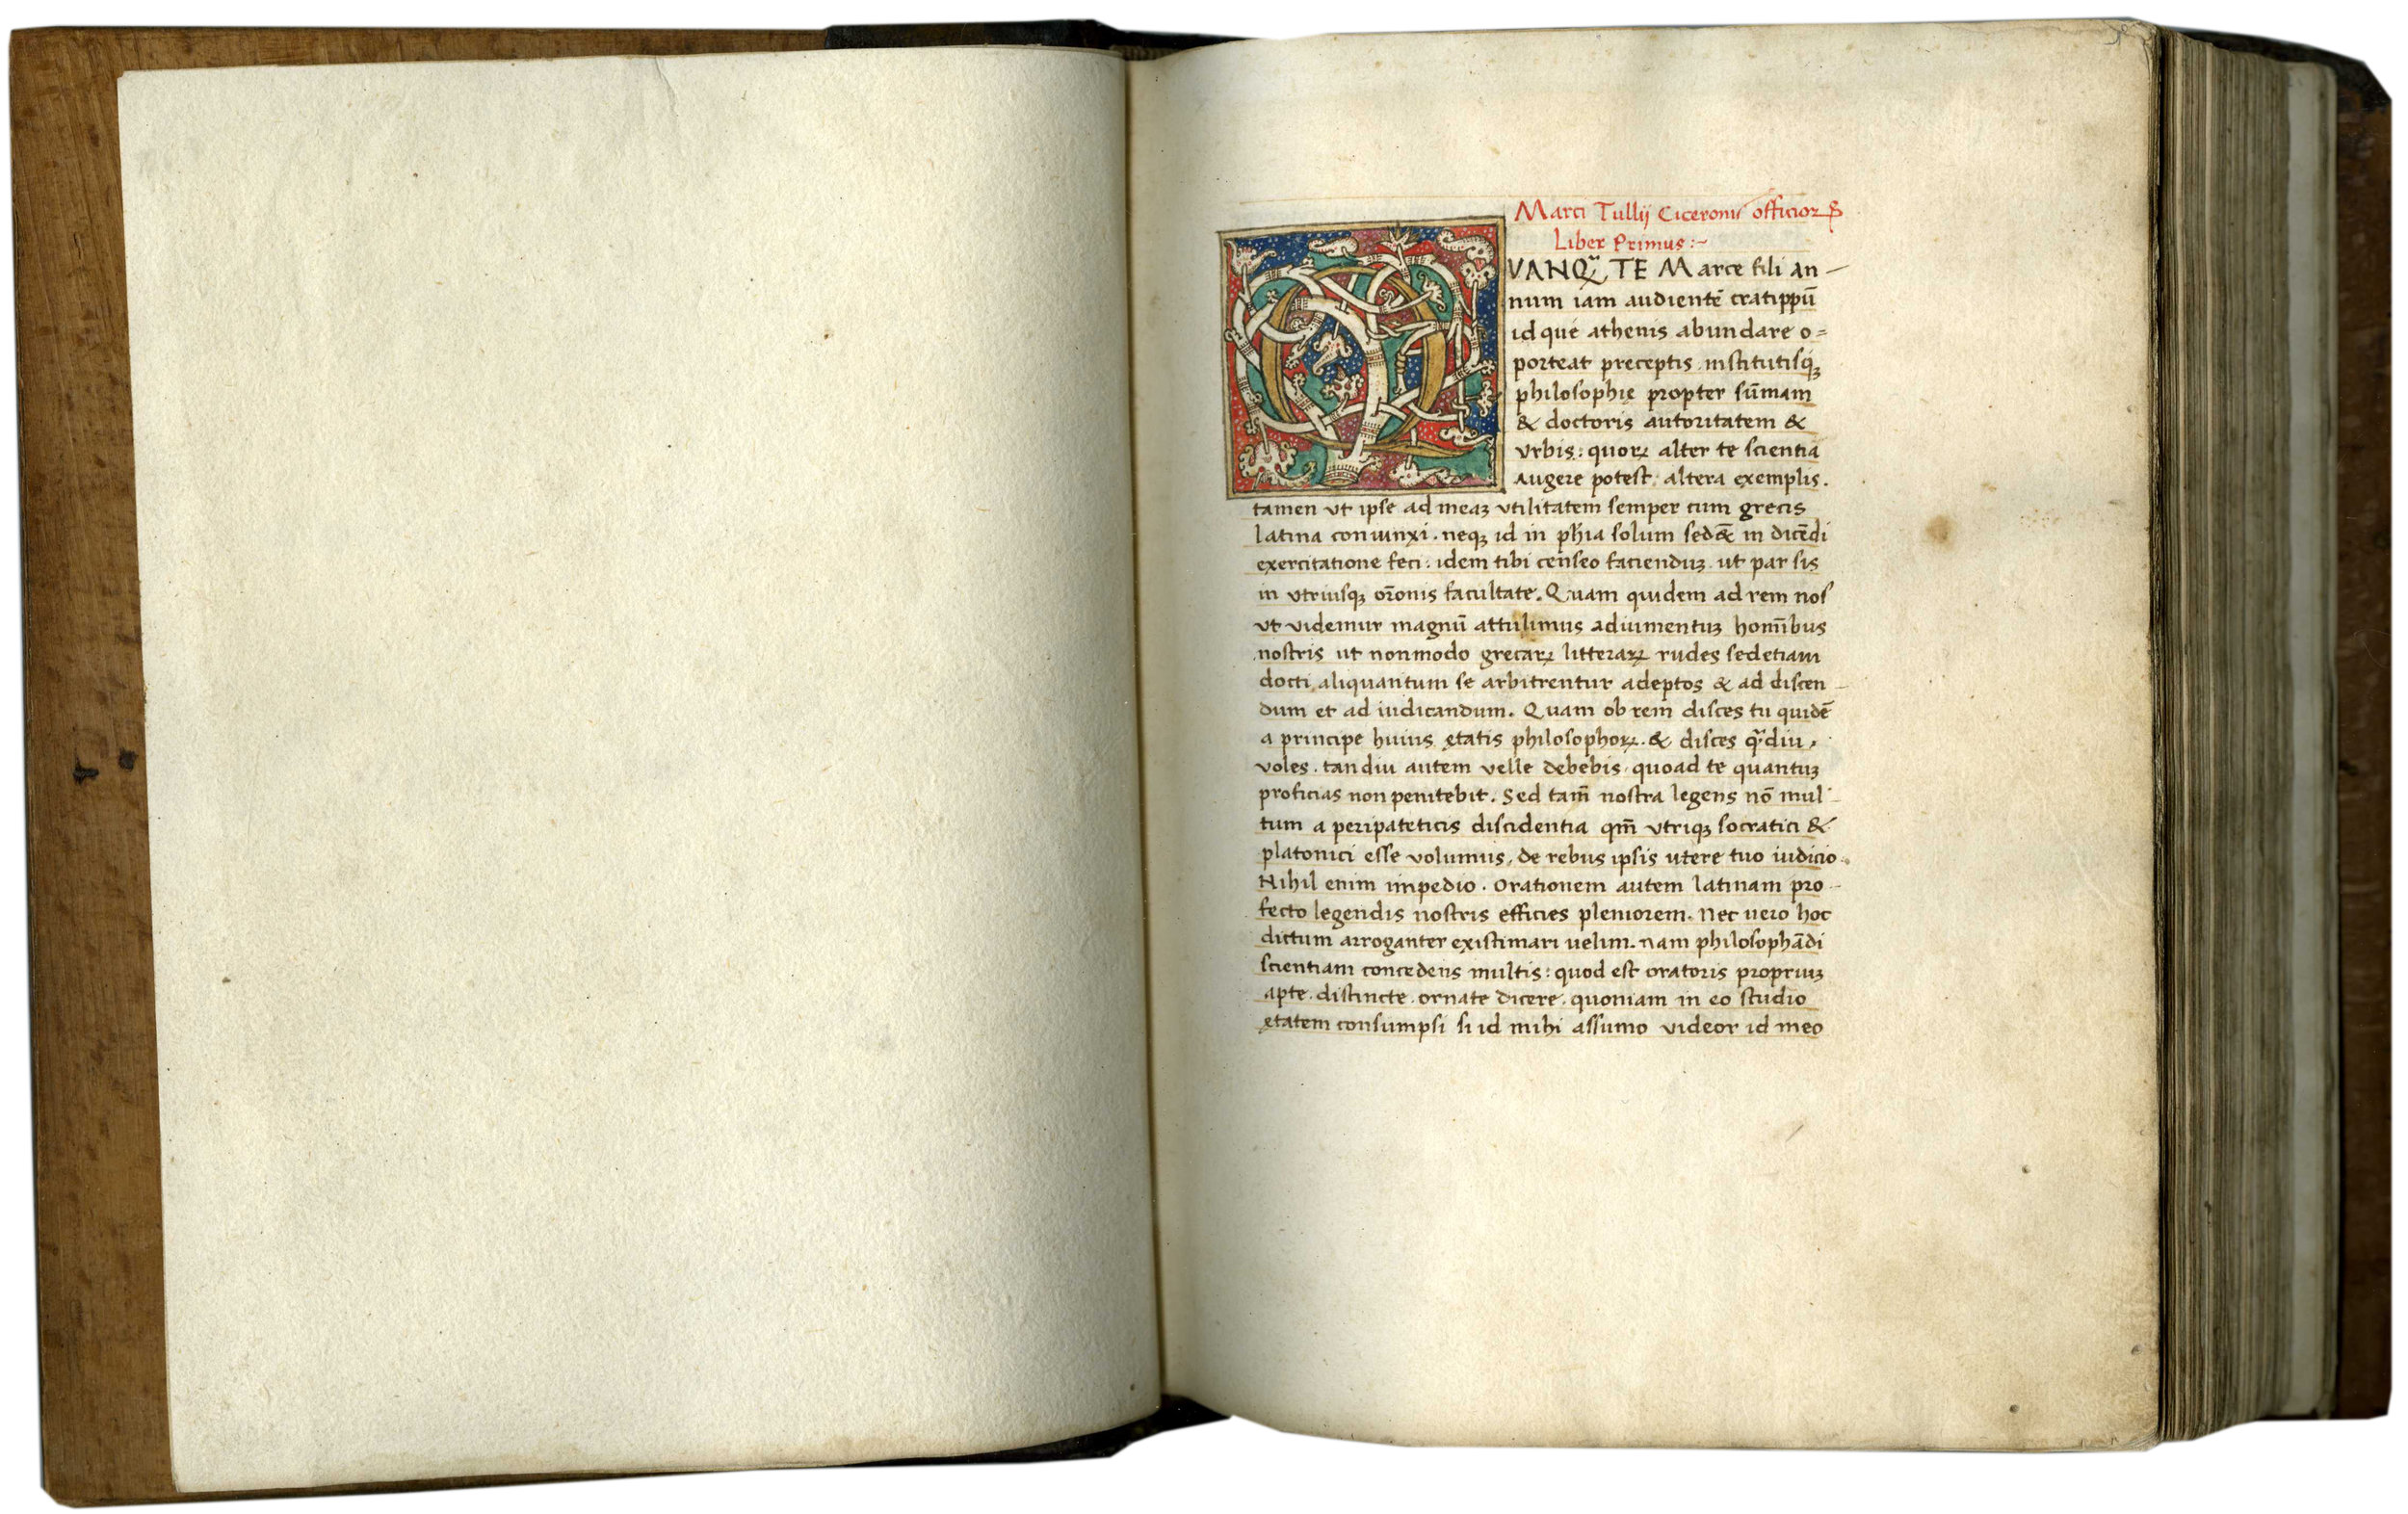 Marci Tullij Ciceronis officioꝝ
Liber Primus :~
QVANQᷓ TE Marce fili an-
num iam audientē cratippū
id que athenis abundare o=
porteat preceptis institutisqꝫ
philosophię propter sūmam
& doctoris autoritatem &
vrbis: quoꝝ alter te scientia
augere potest, altera exemplis.
tamen vt ipse ad meaꝫ vtilitatem semper cum grecis
latina coniunxi. neqꝫ id in ph̄ia solum sed& in dicēdi
exercitatione feci: idem tibi censeo facienduꝫ. ut par sis
in vtriusqꝫ or̄onis facultate. Quam quidem ad rem nos
vt videmur magnū attulimus adiumentuꝫ homībus
nostris ut nonmodo grecaꝝ litteraꝝ rudes sedetiam
docti aliquantum se arbitrentur adeptos & ad discen-
dum et ad iudicandum. Quam ob rem disces tu quidē
a principe huius ętatis philosophoꝝ. & disces qᷓdiu
voles. tandiu autem velle debebis quoad te quantuꝫ
proficias non penitebit. Sed tam̄ nostra legens nō mul-
tum a peripateticis discidentia qm̄ vtriqꝫ socratici &
platonici esse volumus, de rebus ipsis utere tuo iudicio.
Nihil enim impedio. Orationem autem latinam pro-
fecto legendis nostris efficies pleniorem. Nec uero hoc
dictum arroganter existimari uelim. nam philosophādi
scientiam concedens multis: quod est oratoris propriuꝫ
apte. distincte. ornate dicere. quoniam in eo studio
ętatem consumpsi si id mihi assumo videor id meo